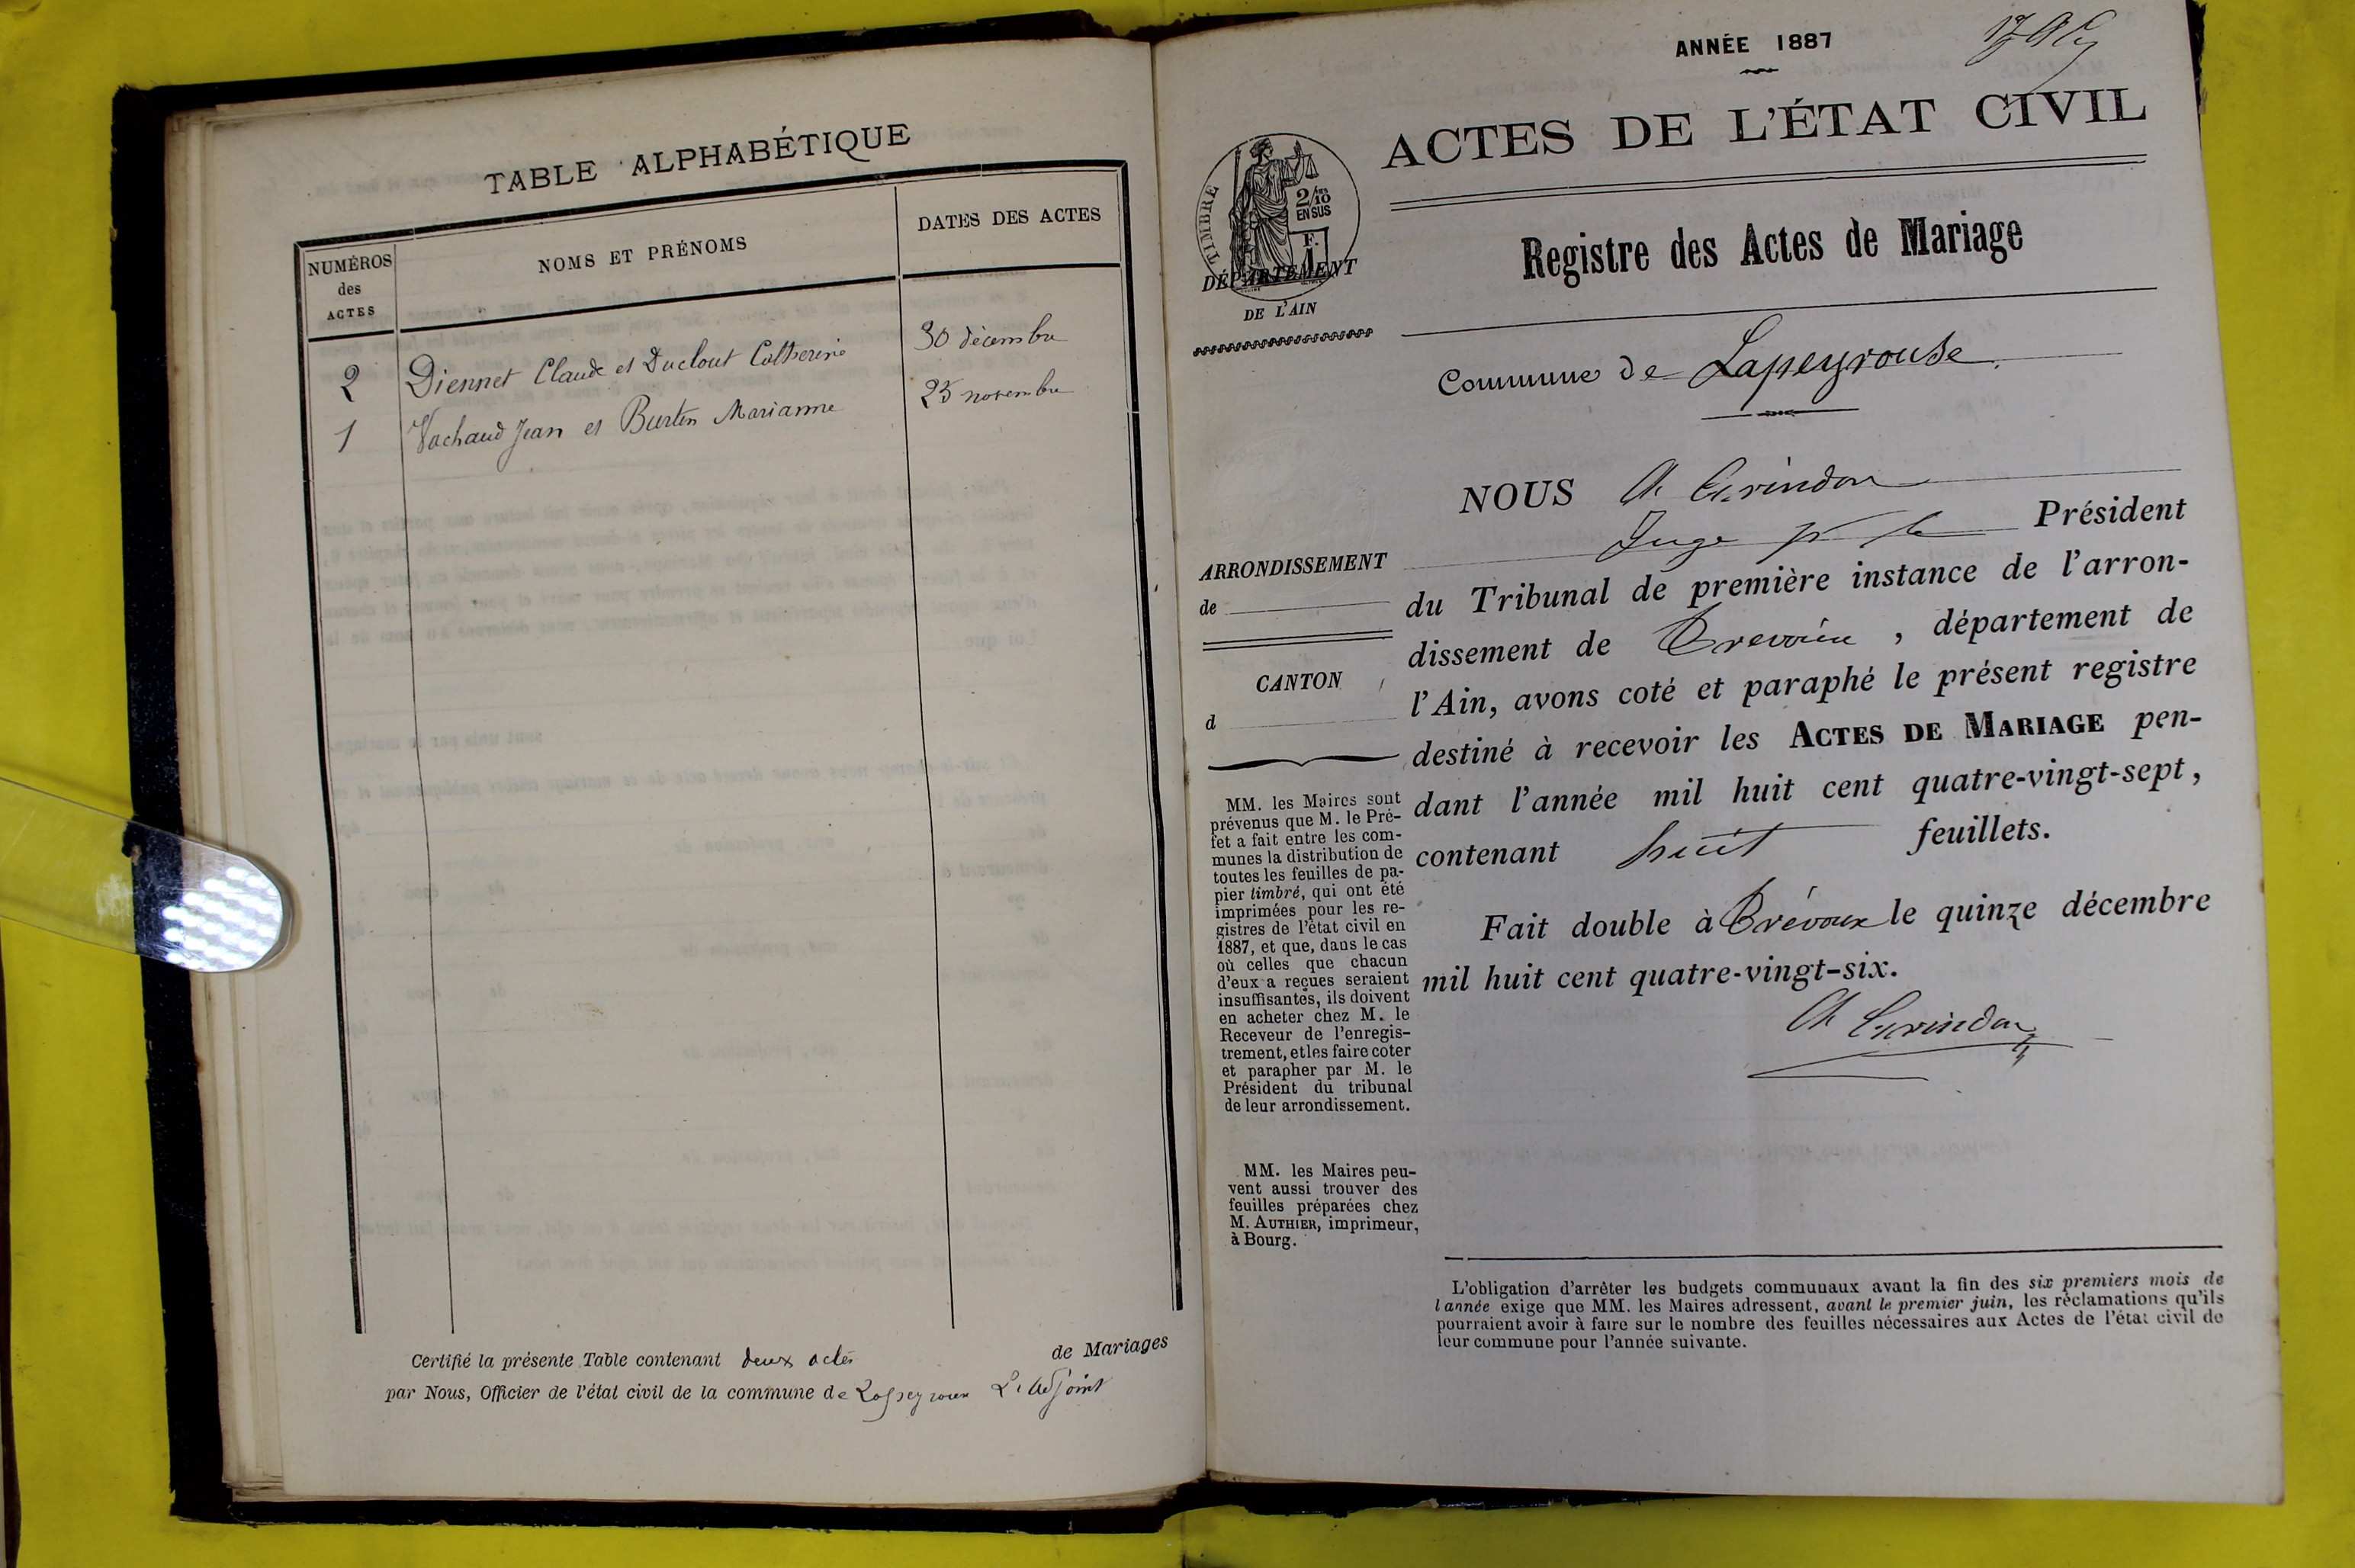 TABLE ALPHABÉTIQUE
NUMÉROS
des
ACTES
NOMS ET PRÉNOMS
DATES DES ACTES
2 Diennet Claude et Duclout Catherine 30 décembre
1 Vachaud Jean et Burtin Marianne 25 novembre
Certifié la présente Table contenant deux actes de Mariages
par Nous, Officier de l'état civil de la commune de Lapeyrouse L'adjoint
ANNÉE 1887
ACTES DE L'ÉTAT CIVIL
TIMBRE
2/10
EN SUS
F.
1
DÉPARTEMENT
DE L'AIN
Registre des Actes de Mariage
Commune de Lapeyrouse
ARRONDISSEMENT
de
CANTON
d
MM. les Maires sont
prévenus que M. le Pré-
fet a fait entre les com-
munes la distribution de
toutes les feuilles de pa-
pier timbré, qui ont été
imprimées pour les re-
gistres de l'état civil en
1887, et que, dans le cas
où celles que chacun
d'eux a reçues seraient
insuffisantes, ils doivent
en acheter chez M. le
Receveur de l'enregis-
trement, et les faire coter
et parapher par M. le
Président du tribunal
de leur arrondissement.
MM. les Maires peu-
vent aussi trouver des
feuilles préparées chez
M. AUTHIER, imprimeur,
à Bourg.
NOUS Ch Grindon
Juge pr le Président
du Tribunal de première instance de l'arron-
dissement de Trevoux, département de
l'Ain, avons coté et paraphé le présent registre
destiné à recevoir les ACTES DE MARIAGE pen-
dant l'année mil huit cent quatre-vingt-sept,
contenant huit feuillets.
Fait double à Trévoux le quinze décembre
mil huit cent quatre-vingt-six.
Ch Grindon
L'obligation d'arrêter les budgets communaux avant la fin des six premiers mois de
l'année exige que MM. les Maires adressent, avant le premier juin, les réclamations qu'ils
pourraient avoir à faire sur le nombre des feuilles nécessaires aux Actes de l'état civil de
leur commune pour l'année suivante.